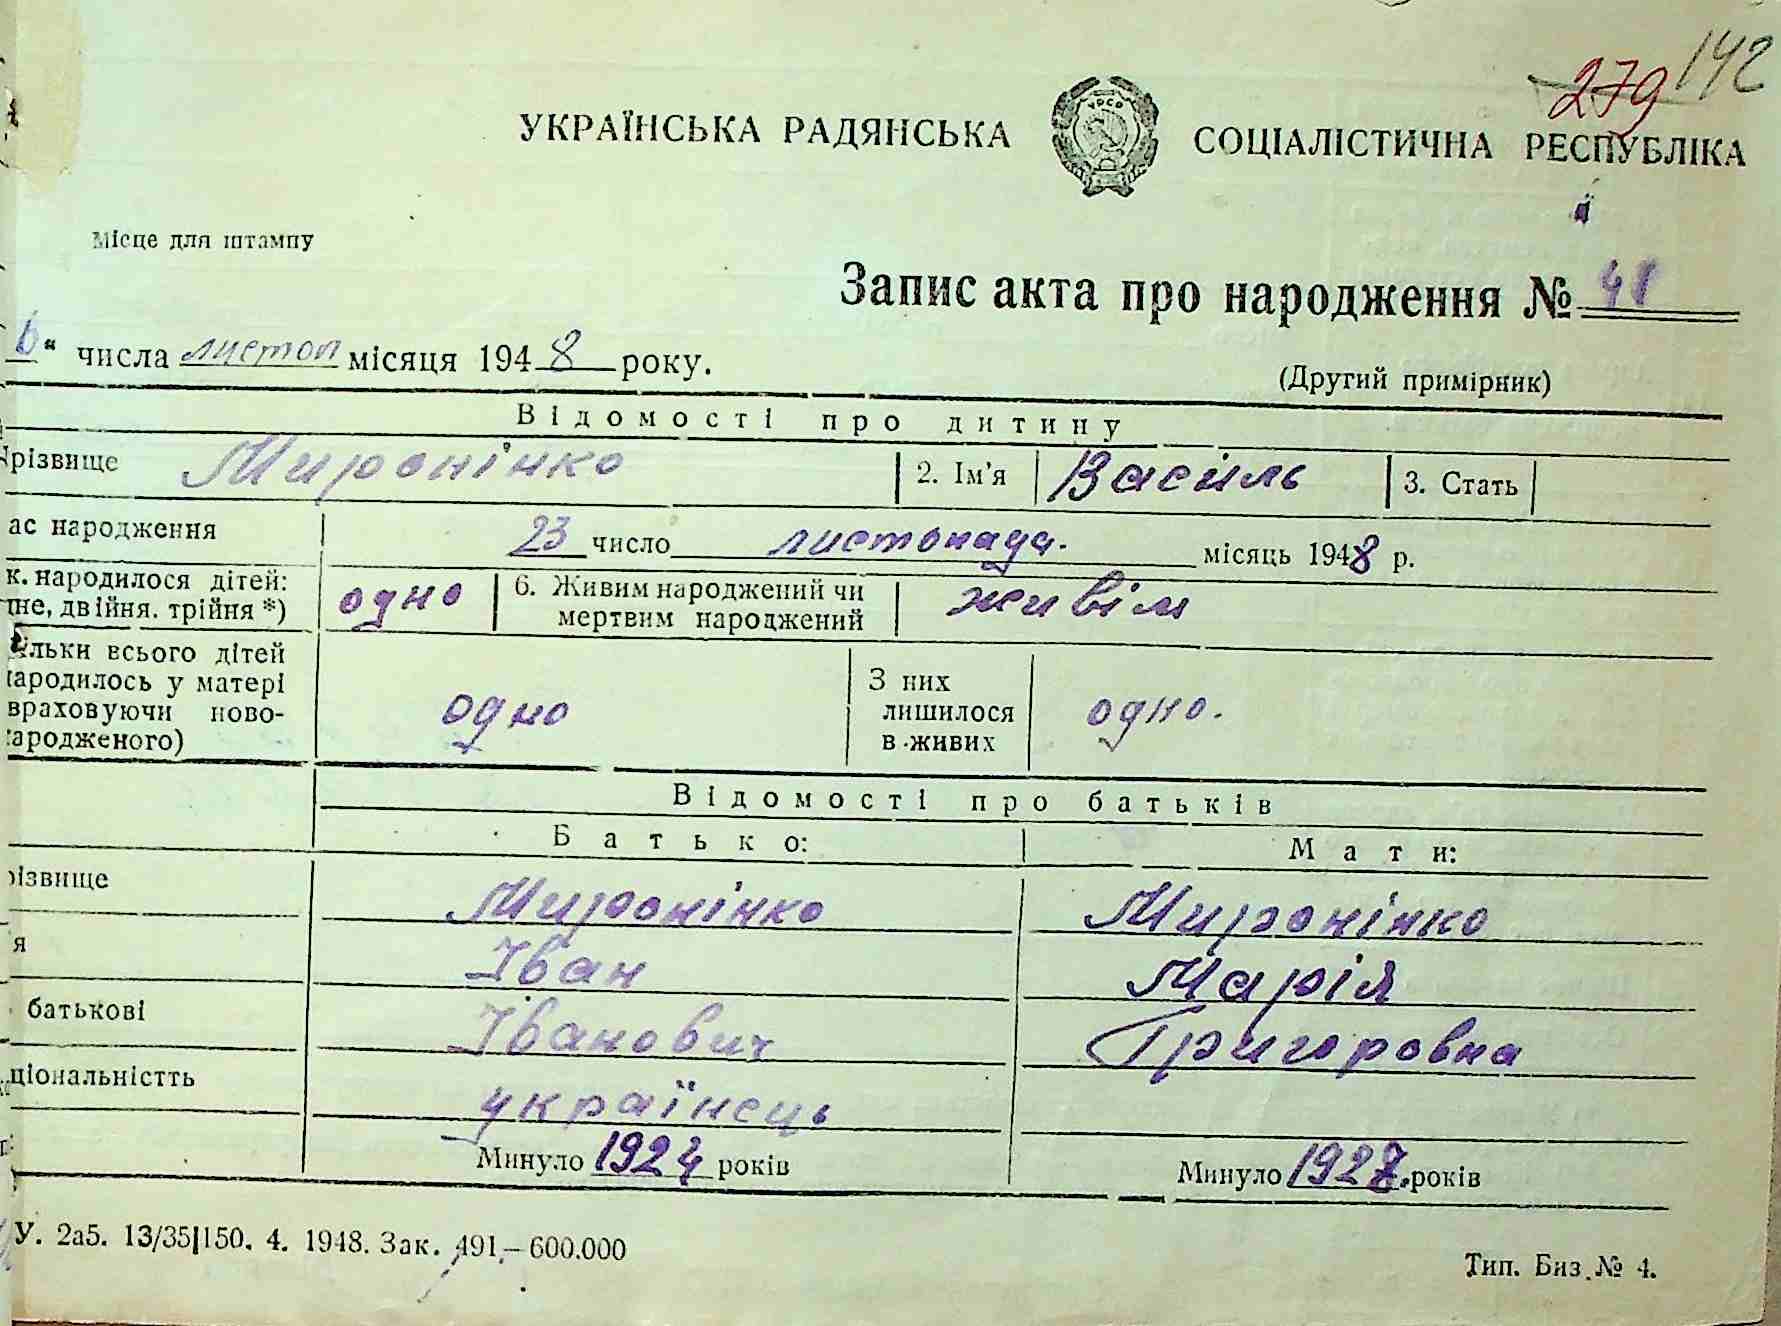 279 142
УКРАЇНСЬКА РАДЯНСЬКА СОЦІАЛІСТИЧНА РЕСПУБЛІКА
УРСР
Місце для штампу
Запис акта про народження № 41
6“ числа листоп місяця 1948 року.
(Другий примірник)
Відомості про дитину
Прізвище Миронінко 2. Ім'я Василь 3. Стать
ас народження 23 число листопада. місяць 1948 р.
к. народилося дітей: одно 6. Живим народжений чи живім
не, двійня. трійня *) мертвим народжений
ільки всього дітей
ародилось у матері одно З них одно.
враховуючи ново- лишилося
ародженого) в живих
Відомості про батьків
Батько: Мати:
різвище Миронінко Миронінко
я Іван Марія
батькові Іванович Григоровна
ціональністть українець
Минуло 1924 років Минуло 1927. років
У. 2а5. 13/35|150. 4. 1948. Зак. 491.—600.000
Тип. Биз. № 4.